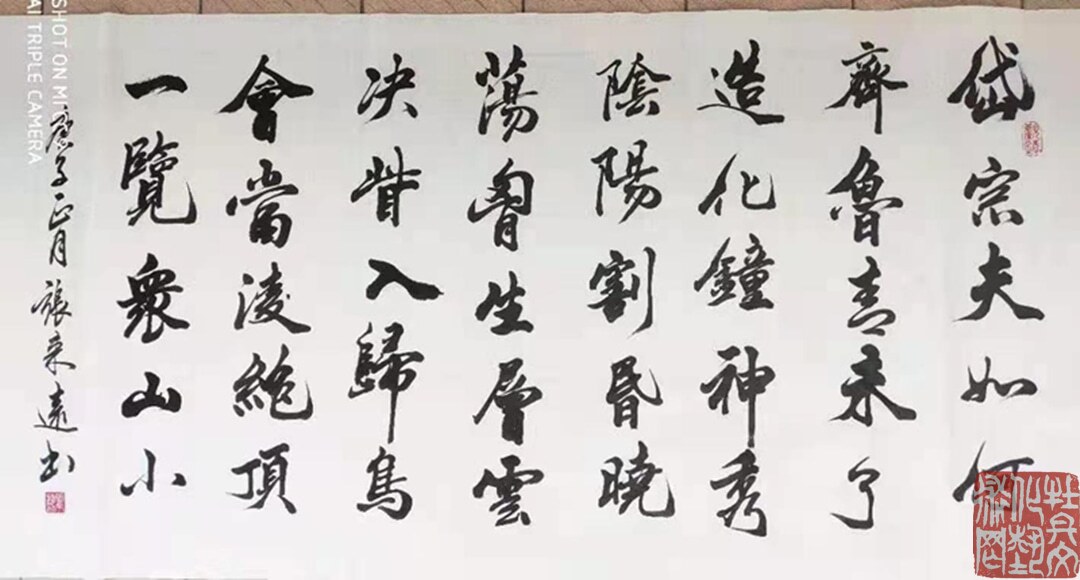 岱宗夫如何
齊魯青未了
造化鐘神秀
陰陽割昏曉
蕩胷生層雲
决眥入歸鳥
會當淩絶頂
一覽衆山小
庚子正月張来遠书
SHOT ON MI
AI TRIPLE CAMERA